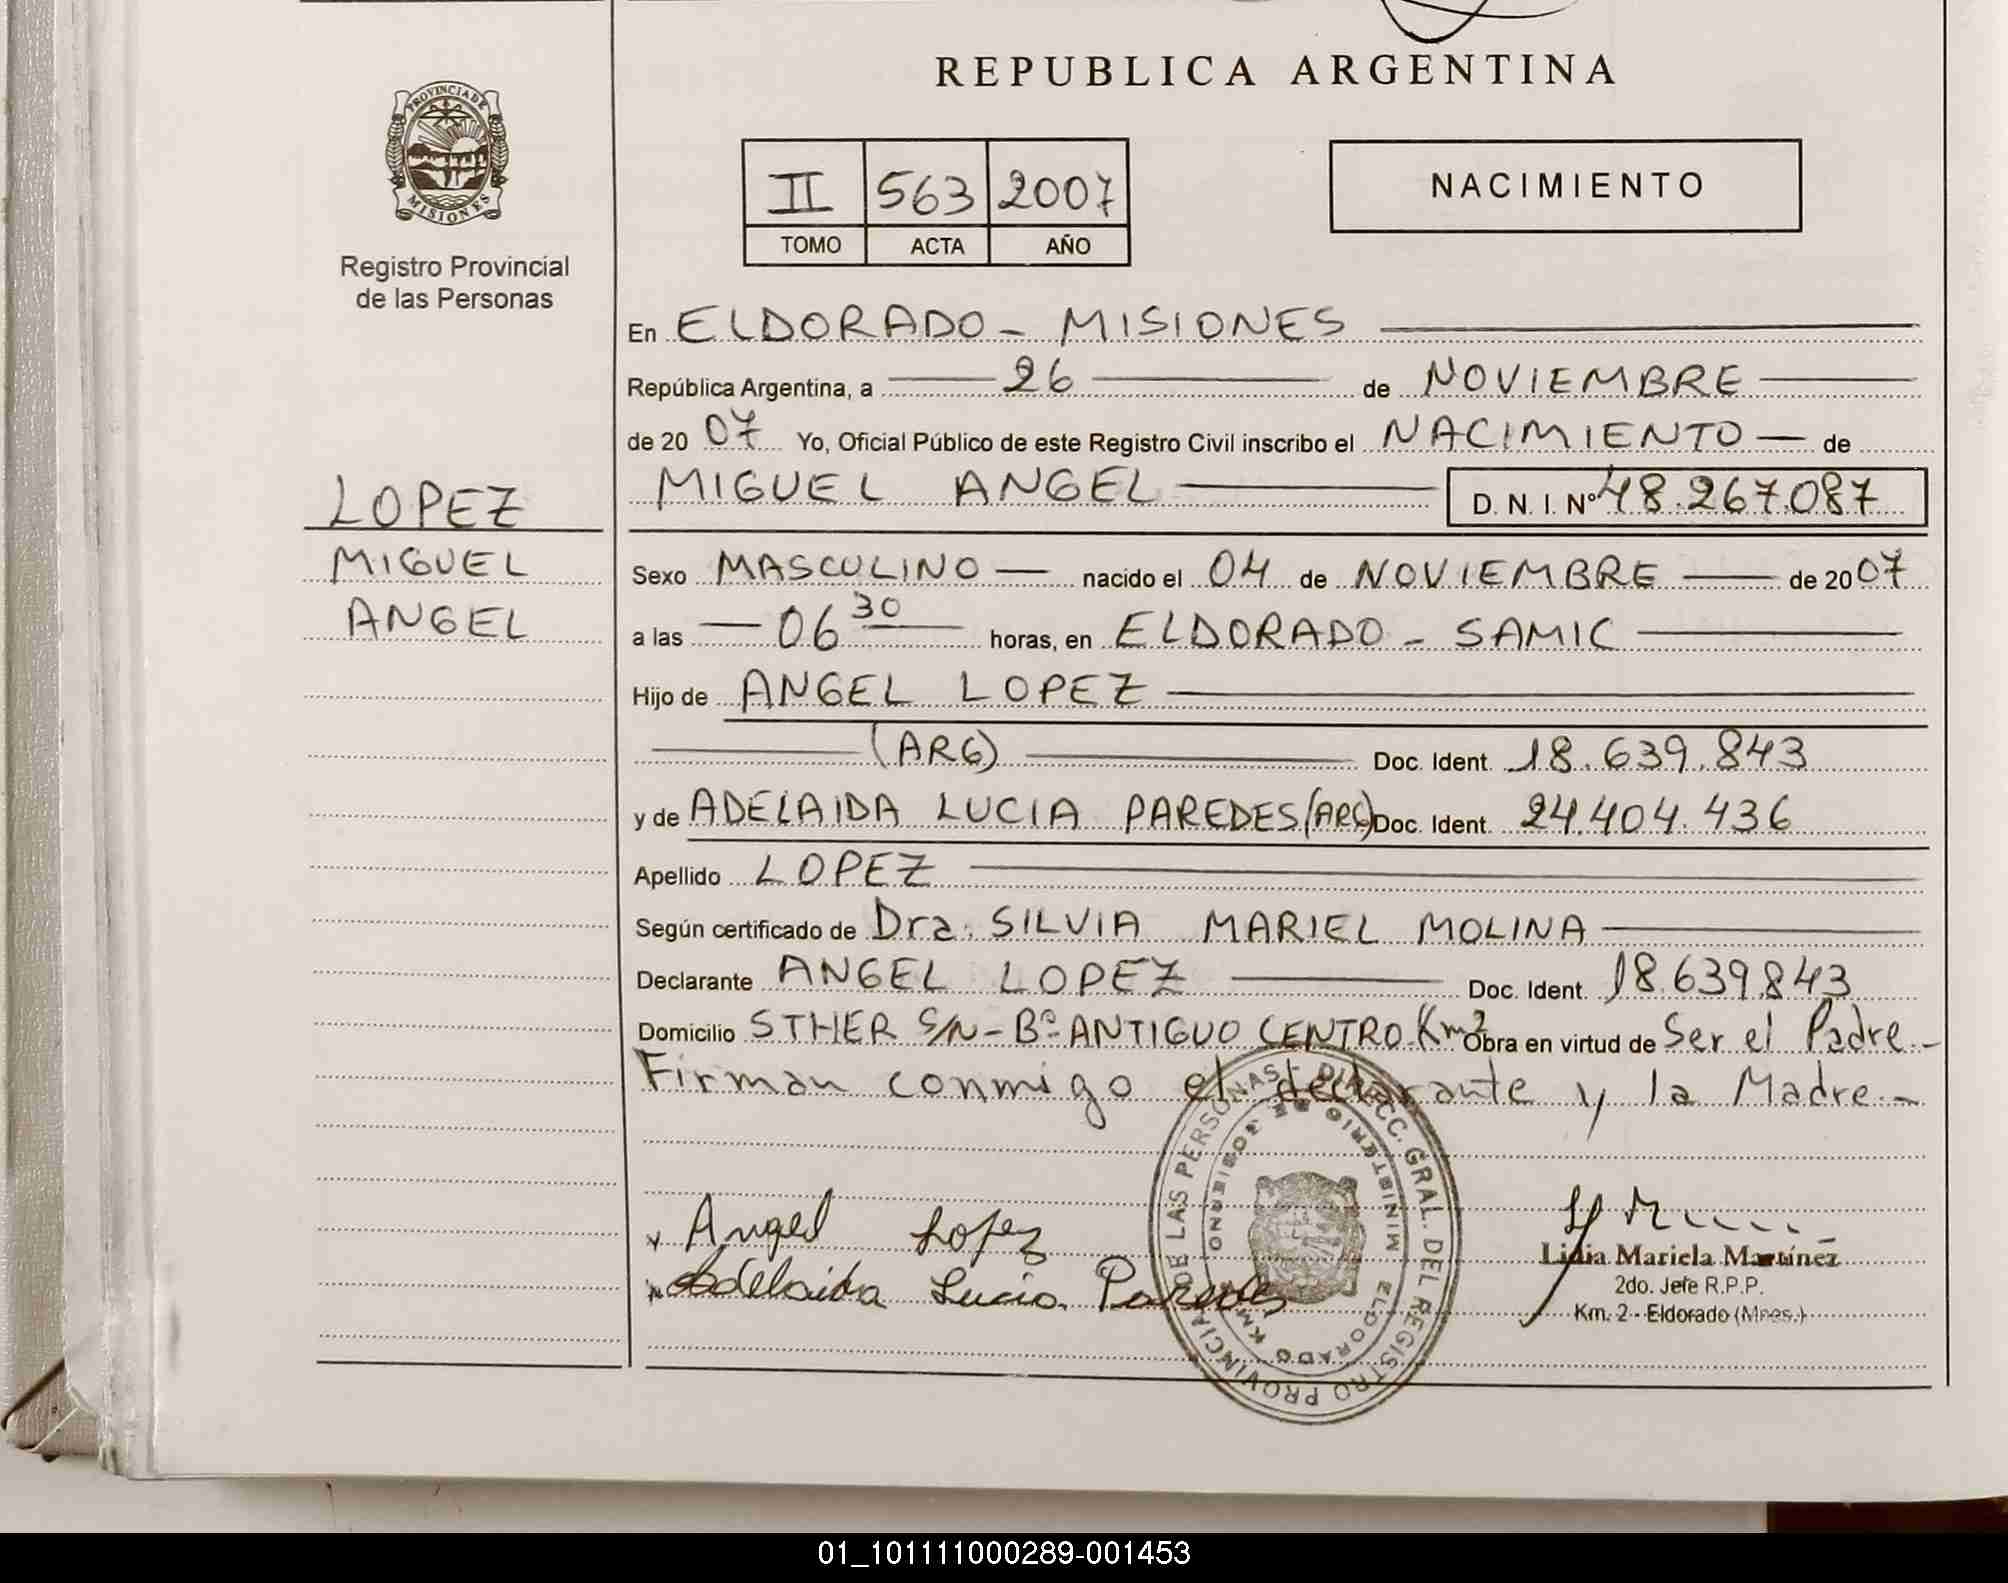 REPUBLICA ARGENTINA
PROVINCIA DE
MISIONES
Registro Provincial
de las Personas
II 563 2007
TOMO ACTA AÑO
NACIMIENTO
LOPEZ
MIGUEL
ANGEL
En ELDORADO - MISIONES
República Argentina, a 26 de NOVIEMBRE
de 20 07 Yo, Oficial Público de este Registro Civil inscribo el NACIMIENTO de
MIGUEL ANGEL D. N. I. Nº 48.267.087
Sexo MASCULINO nacido el 04 de NOVIEMBRE de 20 07
a las 06 30 horas, en ELDORADO - SAMIC
Hijo de ANGEL LOPEZ
(ARG) Doc. Ident. 18.639.843
y de ADELAIDA LUCIA PAREDES (ARG) Doc. Ident. 24.404.436
Apellido LOPEZ
Según certificado de Dra. SILVIA MARIEL MOLINA
Declarante ANGEL LOPEZ Doc. Ident. 18.639.843
Domicilio STHER S/N - Bº ANTIGUO CENTRO Km 2 Obra en virtud de Ser el Padre.-
Firman conmigo el declarante y la Madre.-
Angel Lopez
Adelaida Lucia Paredes
PROVINCIA DE LAS PERSONAS - DIRECC. GRAL. DEL REGISTRO
MINISTERIO DE GOBIERNO
ELDORADO KM
Lidia Mariela Martínez
2do. Jefe R.P.P.
Km. 2 - Eldorado (Mnes.)
01_101111000289-001453